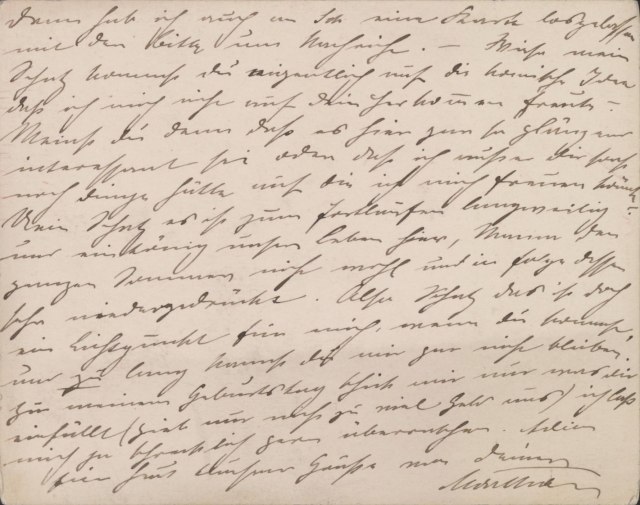 Dann hab ich auch an Ida eine Karte losgelassen
mit der Bitte um Nachricht. – Weißt mein
Schatz kommst du eigentlich auf die komische Idee
daß ich mich nicht auf dein Herkommen freute –
Meinst du denn daß es hier gar so glänzend
interessant sei oder daß ich außer dir sonst
noch Dinge hätte auf die ich mich freuen könnte?
Mein Schatz es ist zum fortlaufen langweilig
und eintönig unser Leben hier, Mama den
ganzen Sommer nicht wohl und in folge dessen
sehr niedergedrückt. Also Schatz das ist doch
ein Lichtpunkt für mich, wenn du kommst,
und zu lang kannst du mir gar nicht bleiben.
Zu meinem Geburtstag schick mir nur was dir
einfällt (gieb nur nicht zu viel Geld aus) ich laß
mich ja schrecklich gern überraschen. Adieu
mein Schatz Grüße von Deiner
Martha